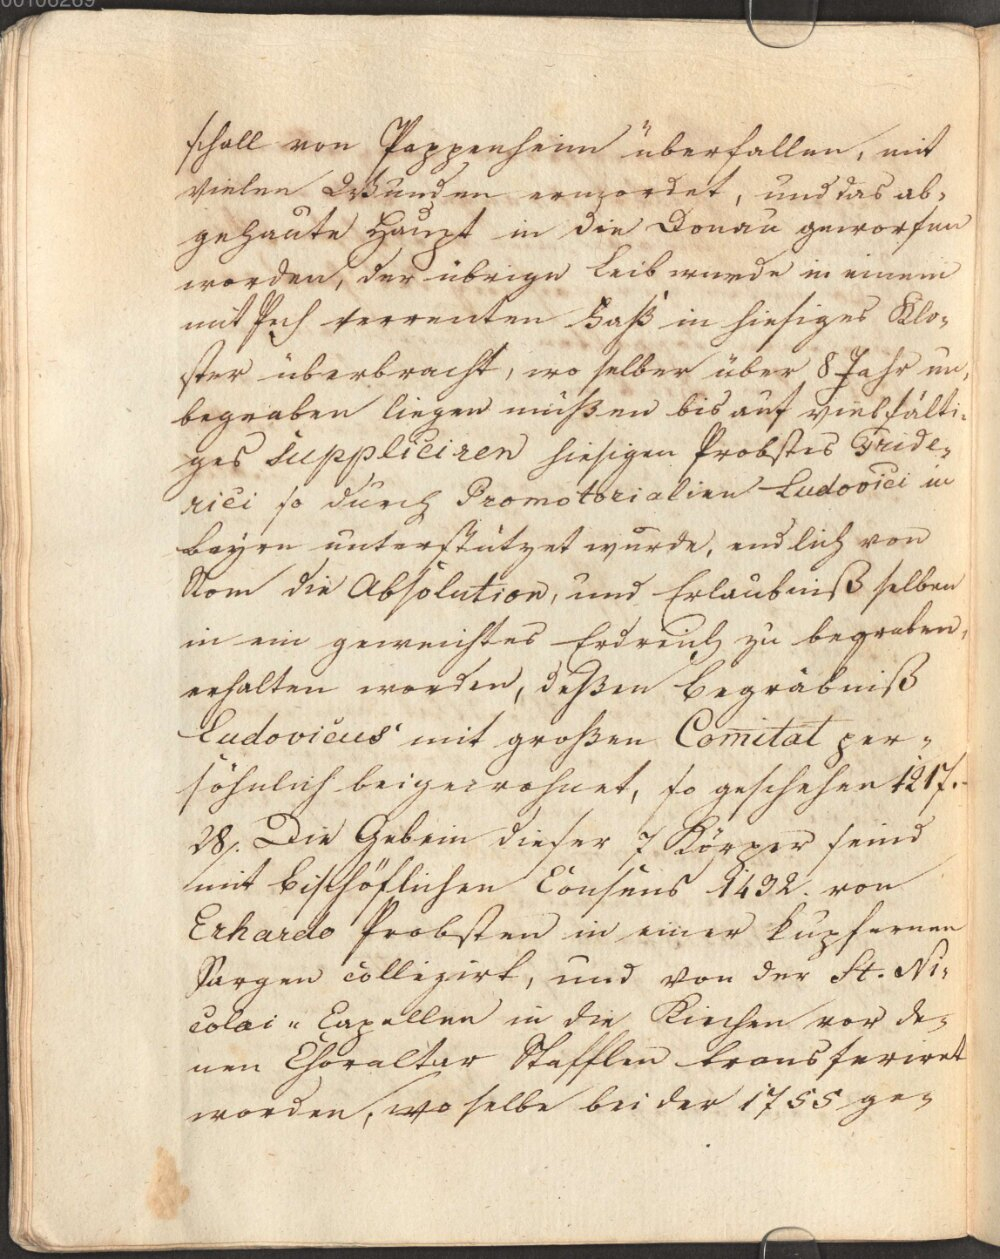 00106269
schall von Pappenheim überfallen, mit
vielen Wunden ermordet, und das ab-
gehaute Haupt in die Donau geworfen
worden, der übrige Leib wurde in einem
mit Pech verrenten Faß in hiesiges Klo-
ster überbracht, wo selber über 8 Jahr un-
begraben liegen müßen bis auf vielfälti-
ges suppliciren hiesigen Probstes Fride-
rici so durch Promotorialien Ludovici in
Bayrn unterstützet wurde, endlich von
Rom die Absolution, und Erlaubniß selben
in ein geweichtes Erdreich zu begraben,
erhalten worden, deßen Begräbniß
Ludovicus mit großen Comitat per-
söhnlich beigewohnet, so geschehen 1217.
28. Die Gebein dieser 7 Körper seind
mit bischöflichen Consens 1432. von
Erhardo Probsten in einer kupfernen
Sargen collegirt, und von der St. Ni-
colai-Capellen in die Kirchen vor de-
nen Choraltar Stafflen transferiret
worden, wo selbe bei der 1755 ge-